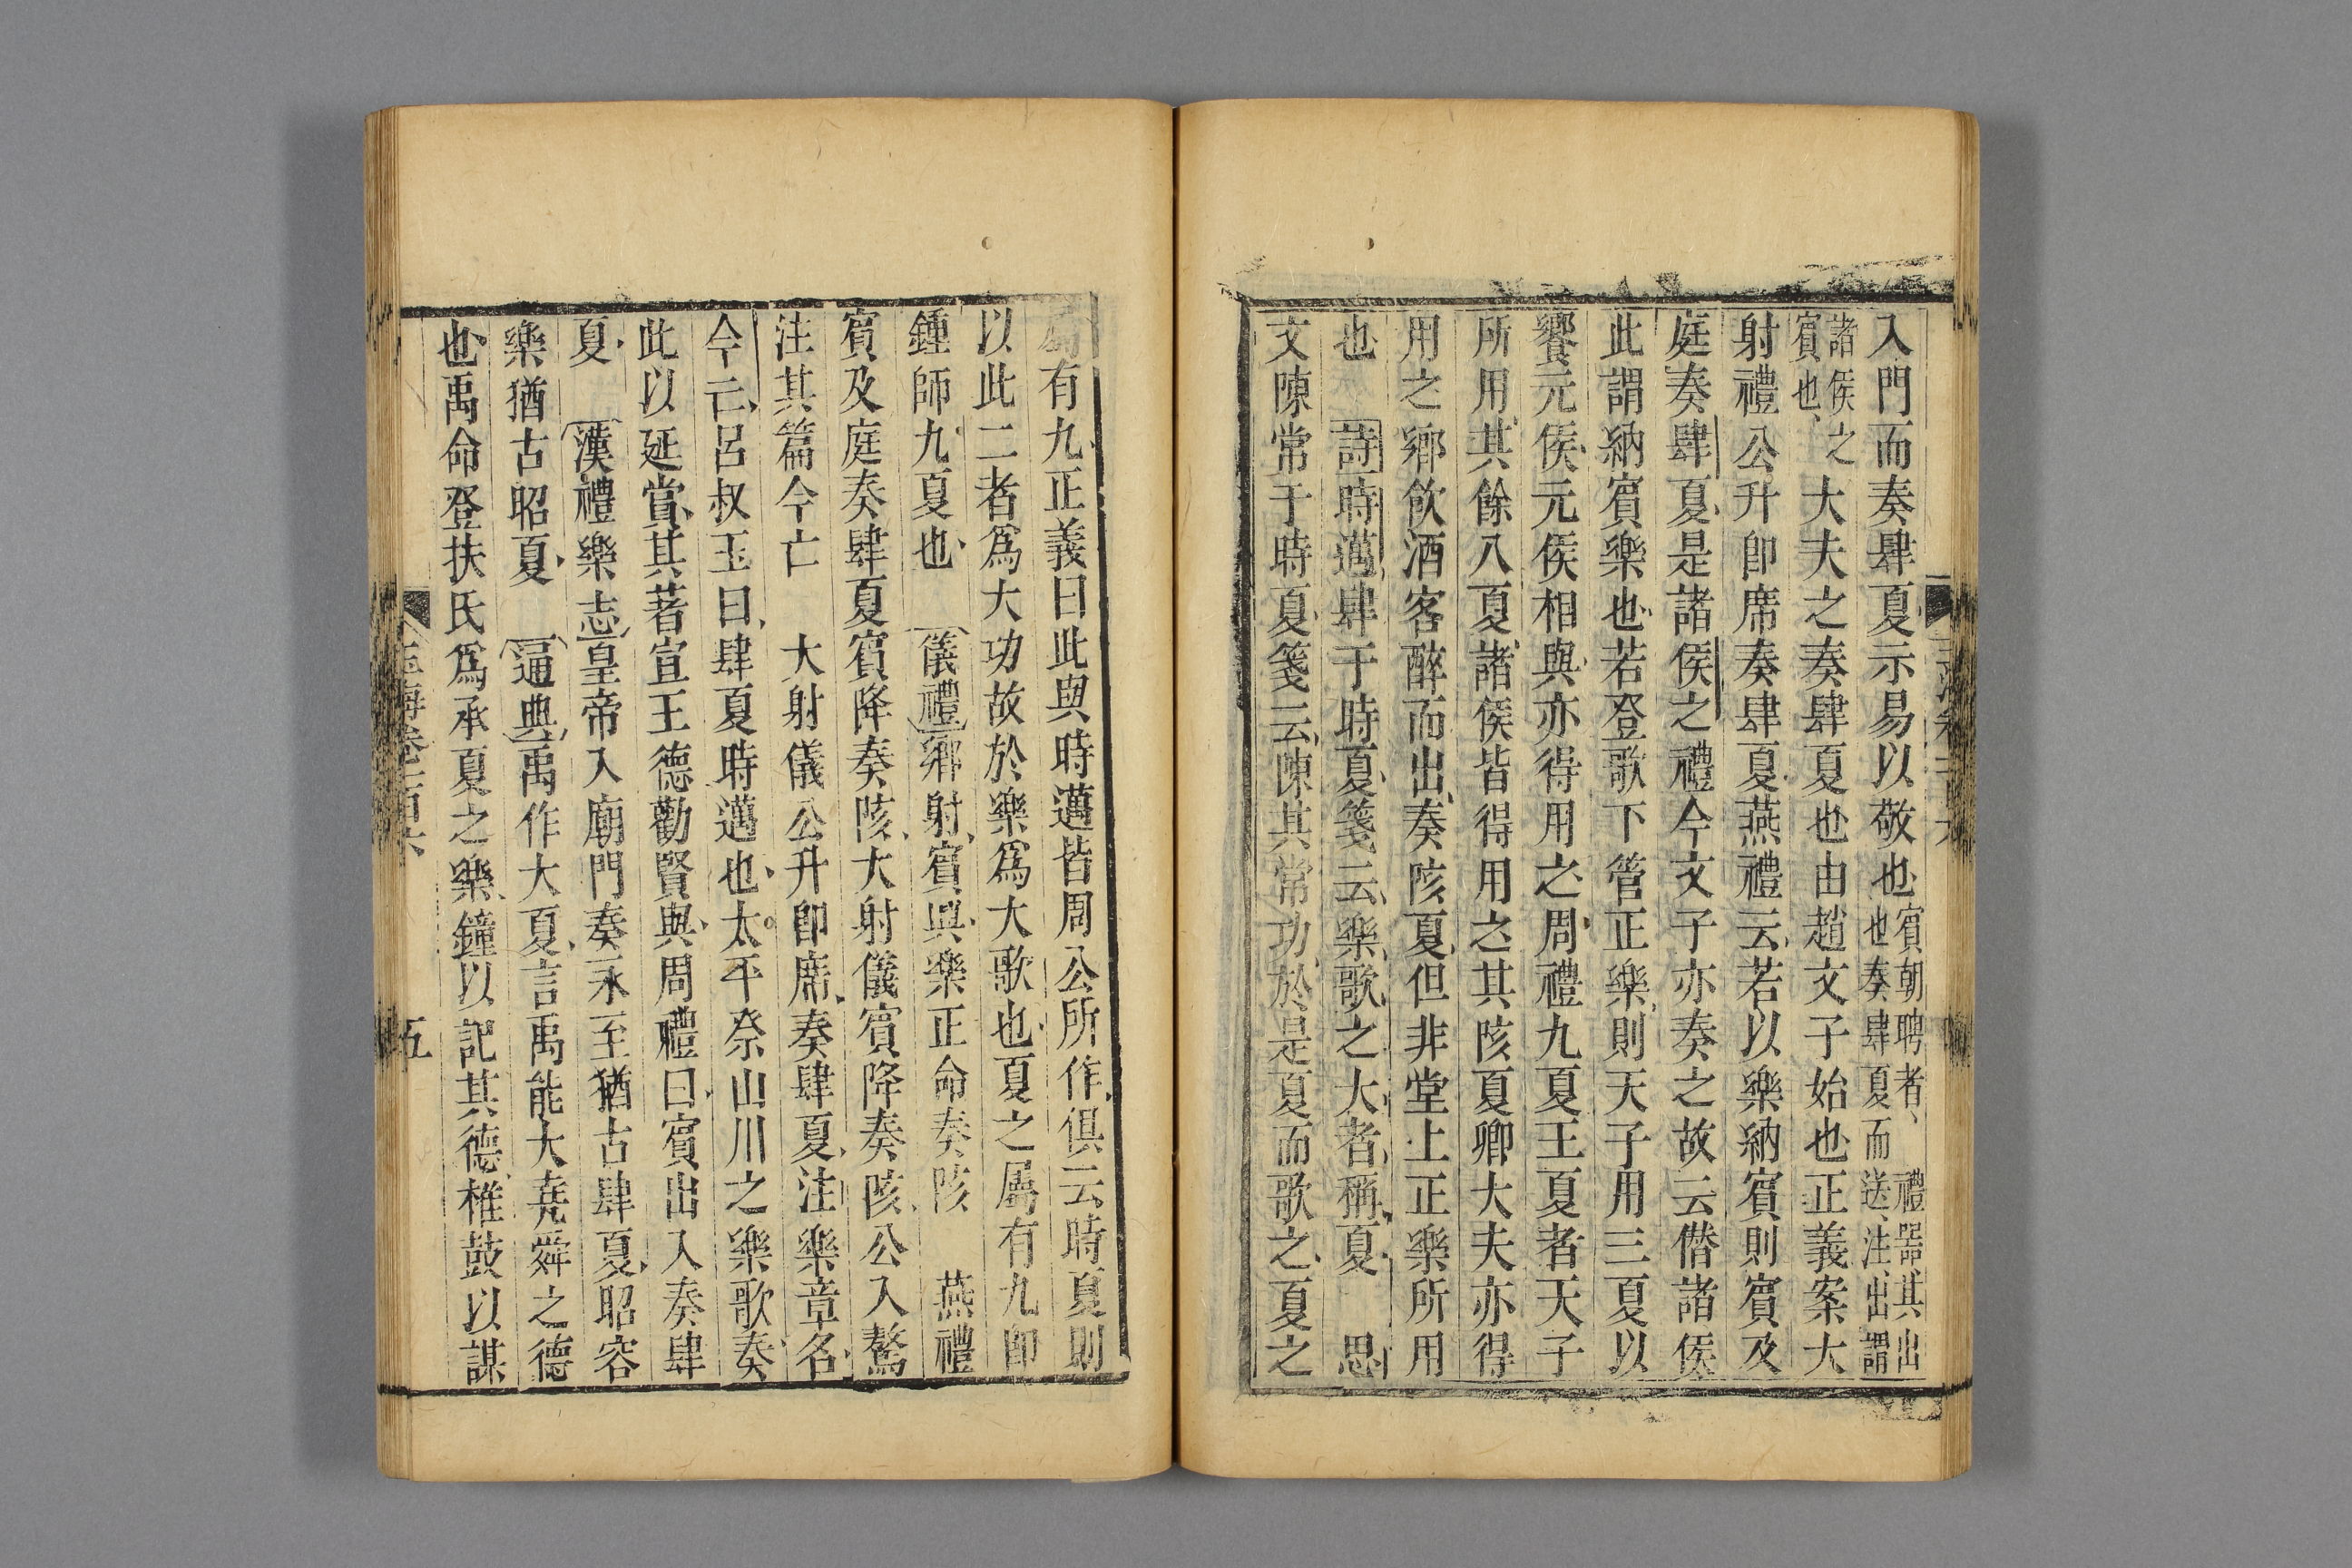 入門而奏肆夏示易以敬也賓朝聘者、禮器其出也奏肆夏而送、注出謂
諸侯之賓也、大夫之奏肆夏也由趙文子始也正義案大
射禮公升卽席奏肆夏燕禮云若以樂納賓則賓及
庭奏肆夏是諸侯之禮今文子亦奏之故云僣諸侯
此謂納賓樂也若登歌下管正樂則天子用三夏以
饗元侯元侯相與亦得用之周禮九夏王夏者天子
所用其餘八夏諸侯皆得用之其陔夏卿大夫亦得
用之鄉飲酒客醉而出奏陔夏但非堂上正樂所用
也 詩時邁肆于時夏箋云樂歌之大者稱夏 思
文陳常于時夏箋云陳其常功於是夏而歌之夏之
屬有九正義曰此與時邁皆周公所作俱云時夏則
以此二者爲大功故於樂爲大歌也夏之屬有九卽
鍾師九夏也 儀禮鄉射賓興樂正命奏陔 燕禮
賓及庭奏肆夏賓降奏陔大射儀賓降奏陔公入驁
注其篇今亡 大射儀公升卽席奏肆夏注樂章名
今亡呂叔玉曰肆夏時邁也太平祭山川之樂歌奏
此以延賞其著宣王德勸賢與周禮曰賓出入奏肆
夏 漢禮樂志皇帝入廟門奏永至猶古肆夏昭容
樂猶古昭夏 通典禹作大夏言禹能大堯舜之德
也禹命登扶氏爲承夏之樂鐘以記其德椎鼓以謀
玉海卷一百六
五